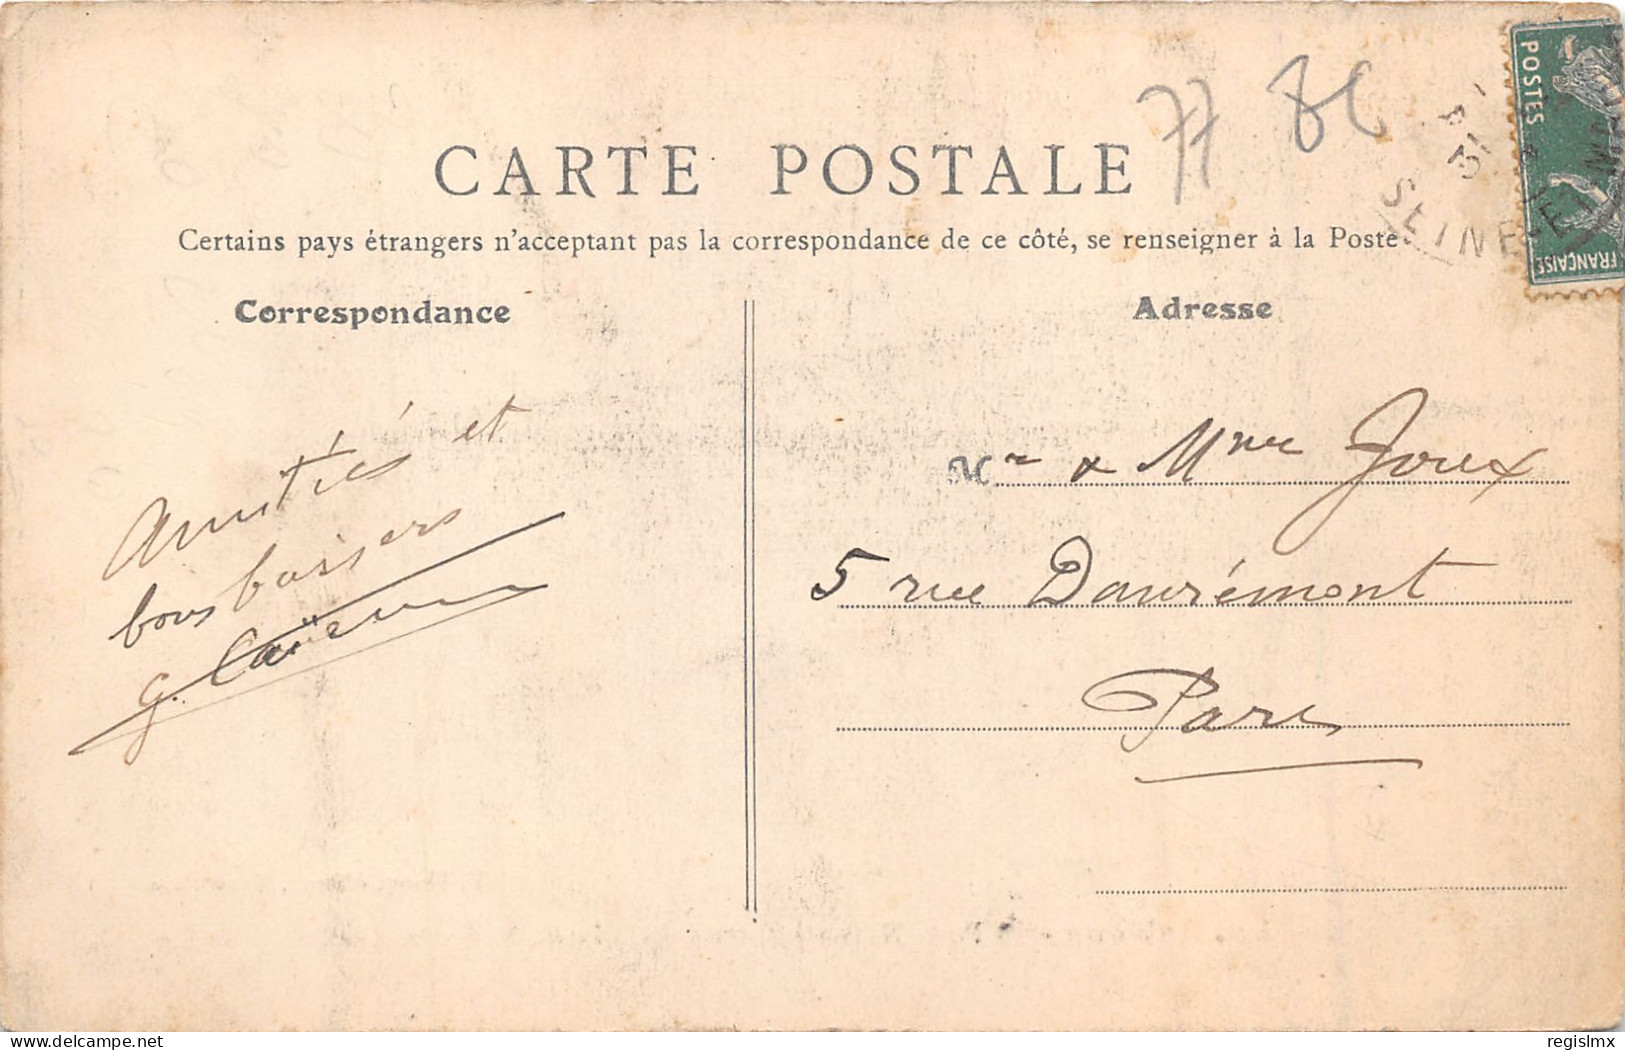 77
CARTE POSTALE
Certains pays étrangers n'acceptant pas la correspondance de ce côté, se renseigner à la Poste
POSTES
FRANÇAISE
31
SEINE-ET-M
Correspondance
Adresse
Amitiés et
bons baisers
G.
Mr & Mme Joux
5 rue Danrémont
Paris
delcampe.net
regislmx